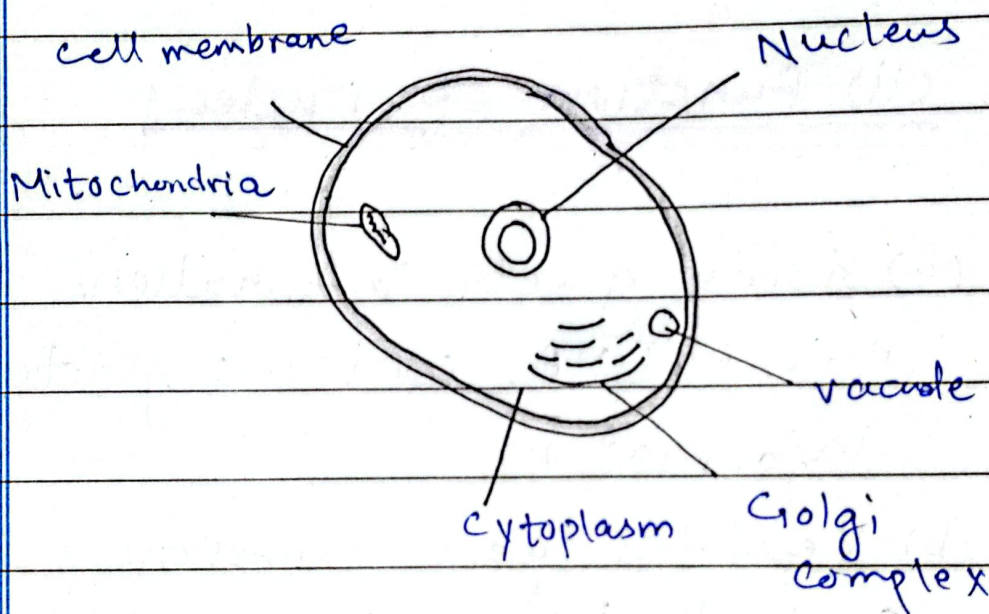 Cell membrane
Nucleus
Mitochondria
vacuole
Cytoplasm
Golgi
Complex